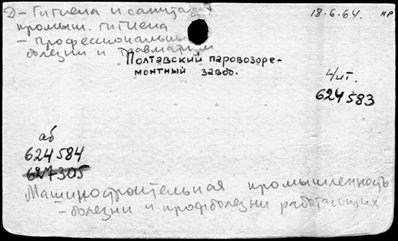 Д – Гигиена и санитар
18.6.64. НР
промыш. гигиена
– Профессиональн
болезни и травматизм
Полтавский паровозоре-
монтный завод.
4/ит.
624583
аб
624584
627305
Машиностроительная промышленность
– болезни и профболезни работающих